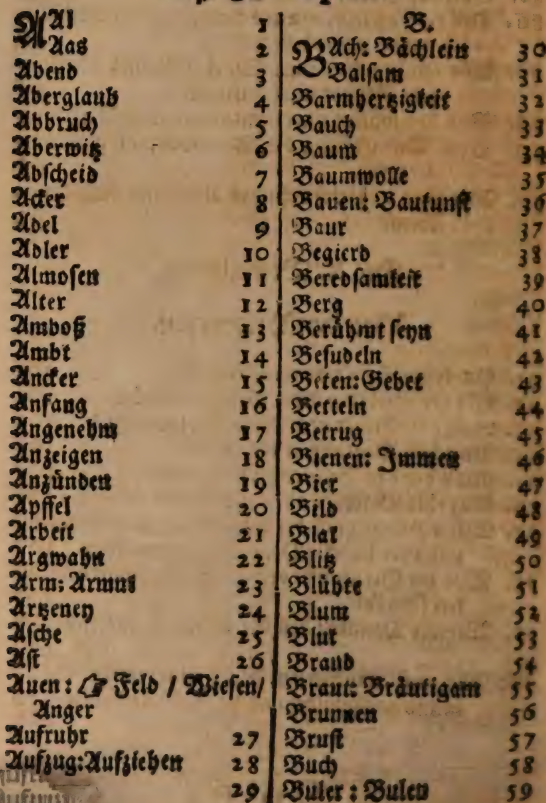 Aal 1
Aas 2
Abend 3
Aberglaub 4
Abbruch 5
Aberwitz 6
Abscheid 7
Acker 8
Adel 9
Adler 10
Almosen 11
Alter 12
Amboß 13
Ambt 14
Ancker 15
Anfang 16
Angenehm 17
Anzeigen 18
Anzünden 19
Apffel 20
Arbeit 21
Argwahn 22
Arm: Armut 23
Artzeney 24
Asche 25
Ast 26
Auen: ☞ Feld / Wiesen/
Anger
Aufruhr 27
Aufzug: Aufziehen 28
29
B.
Bach: Bächlein 30
Balsam 31
Barmhertzigkeit 32
Bauch 33
Baum 34
Baumwolle 35
Bauen: Baukunst 36
Baur 37
Begierd 38
Beredsamkeit 39
Berg 40
Berühmt seyn 41
Besudeln 42
Beten: Gebet 43
Betteln 44
Betrug 45
Bienen: Immen 46
Bier 47
Bild 48
Blat 49
Blitz 50
Blühte 51
Blum 52
Blut 53
Brand 54
Braut: Bräutigam 55
Brunnen 56
Brust 57
Buch 58
Buler: Bulen 59